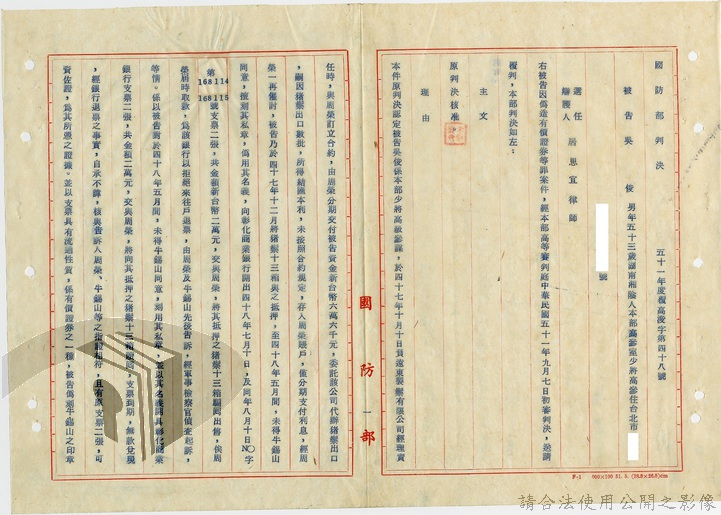 國防部判決
五十一年度覆高浚字第四十八號
被告 吳俊 男年五十三歲湖南湘陰人本部高參室少將高參住台北市
號
選任辯護人 居思宜律師
右被告因偽造有價證券等罪案件，經本部高等審判庭中華民國五十一年九月七日初審判決，送請
覆判，本部判決如左：
主文
原判決核准。
理由
本件原判決認定被告吳俊係本部少將高級參謀，於四十七年十月十日負遠東製鬃有限公司經理責
任時，與周榮訂立合約，由周榮分期交付被告資金新台幣六萬六千元，委託該公司代辦豬鬃出口
，嗣因豬鬃出口數批，所得結匯本利，未按照合約規定，存入周榮賬戶，僅分期支付利息，經周
榮一再催討，被告乃於四十七年十二月將豬鬃十三箱與之抵押，至四十八年五月間，未得牛錫山
同意，擅刻其私章，偽用其名義，向彰化商業銀行開出四十八年七月十日，及同年八月十日NO字
第168114 168115號支票二張，共金額新台幣二萬元，交與周榮，將其抵押之豬鬃十三箱騙回出售，俟周
榮屆時取款，為該銀行以拒絕來往戶退票，由周榮及牛錫山先後告訴，經軍事檢察官偵查起訴，
等情。係以被告曾於四十八年五月間，未得牛錫山同意，刻用其私章，並以其名義開具彰化商業
銀行支票二張，共金額二萬元，交與周榮，將向其抵押之豬鬃十三箱騙回，支票到期，無款兌現
，經銀行退票之事實，自承不諱，核與告訴人周榮、牛錫山等之指證相符，且有原支票二張，可
資佐證，為其所憑之證據。並以支票具有流通性質，係有價證券之一種，被告偽造牛錫山之印章
國防部
一
F-1
請合法使用公開之影像